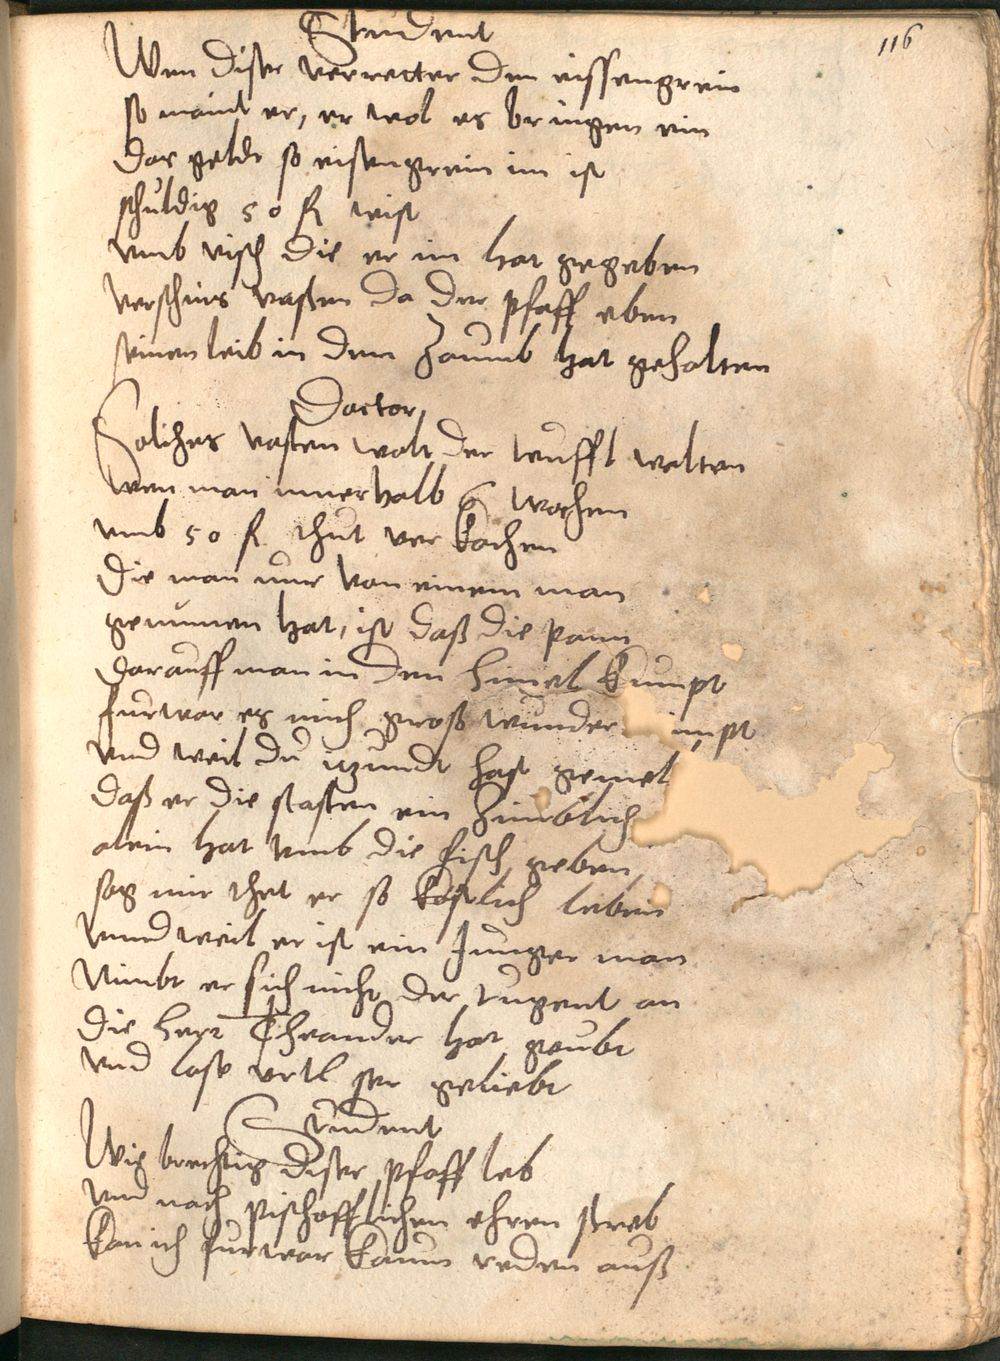 116
Student
Wen diser verretter den eissengrein
so maint er, er wol es bringen ein
das geldt so eisengrein im ist
schuldig 50 fl wist
umb visch die er im hat gegeben
verschins vasten da der pfaff eben
seinen leib in dem Zaumb hat gehalten
Doctor
Soliches vasten wolt der teuffl walten
wen man innerhalb 6 wochen
umb 50 fl thut ver kochen
die man nur von einem man
genumen hat, ist daß die pann
darauff man in den himel kumpt
furwar es mich groß wunder impt
und weil du itzundt hast gemel
daß er die fasten ein Zimblich
alein hat umb die fisch geben
sag mir thet er so kostlich leben
unnd weil er ist ein Junger man
Nimbt er sich nicht der tugent an
die herr Theander hat geubt
und last urtl ser geliebt
Student
Wie brechtig diser pfaff leb
und nach pischofflichen ehren streb
kan ich furwar kaum reden auß